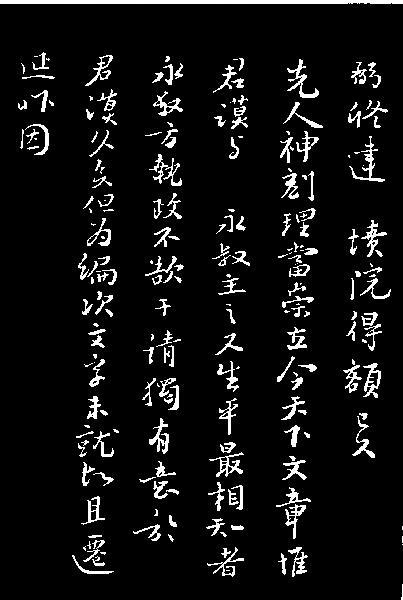 弼修建 墳院得額已久
先人神刻理當崇立今天下文章惟
君謨與 永叔主之又生平最相知者
永叔方執政不欲干請獨有意於
君謨久矣但為編次文字未就故且遷
延昨因